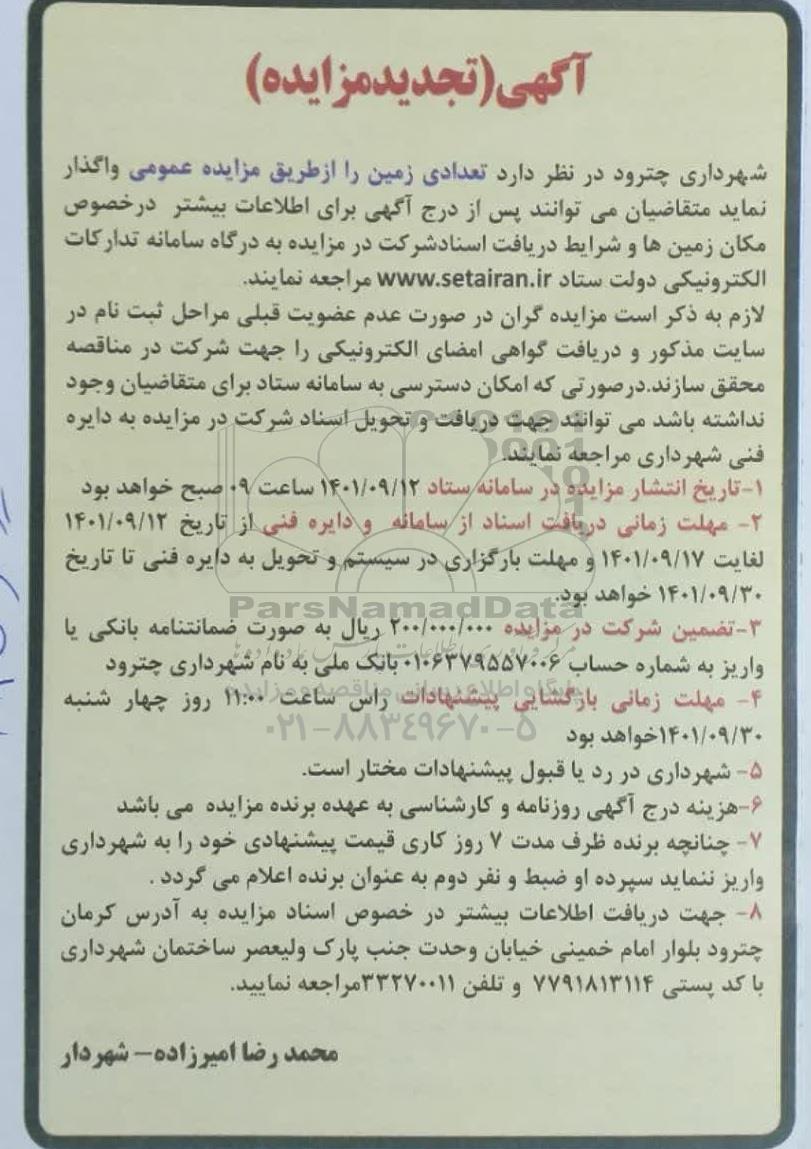 آگهی(تجدیدمزایده)
شهرداری چترود در نظر دارد تعدادی زمین را ازطریق مزایده عمومی واگذار
نماید متقاضیان می توانند پس از درج آگهی برای اطلاعات بیشتر درخصوص
مکان زمین ها و شرایط دریافت اسنادشرکت در مزایده به درگاه سامانه تدارکات
الکترونیکی دولت ستاد www.setairan.ir مراجعه نمایند.
لازم به ذکر است مزایده گران در صورت عدم عضویت قبلی مراحل ثبت نام در
سایت مذکور و دریافت گواهی امضای الکترونیکی را جهت شرکت در مناقصه
محقق سازند.درصورتی که امکان دسترسی به سامانه ستاد برای متقاضیان وجود
نداشته باشد می توانند جهت دریافت و تحویل اسناد شرکت در مزایده به دایره
فنی شهرداری مراجعه نمایند.
۱-تاریخ انتشار مزایده در سامانه ستاد ۱۴۰۱/۰۹/۱۲ ساعت ۰۹ صبح خواهد بود
۲- مهلت زمانی دریافت اسناد از سامانه و دایره فنی از تاریخ ۱۴۰۱/۰۹/۱۲
لغایت ۱۴۰۱/۰۹/۱۷ و مهلت بارگزاری در سیستم و تحویل به دایره فنی تا تاریخ
۱۴۰۱/۰۹/۳۰ خواهد بود.
ParsNamadData
۳-تضمین شرکت در مزایده ۲۰۰/۰۰۰/۰۰۰ ریال به صورت ضمانتنامه بانکی یا
واریز به شماره حساب ۰۱۰۶۳۷۹۵۵۷۰۰۶ بانک ملی به نام شهرداری چترود
پایگاه اطلاع رسانی مناقصه و مزایده
۴- مهلت زمانی بازگشایی پیشنهادات راس ساعت ۱۱:۰۰ روز چهار شنبه
۰۲۱-۸۸۳۴۹۶۷۰-۵
۱۴۰۱/۰۹/۳۰خواهد بود
۵- شهرداری در رد یا قبول پیشنهادات مختار است.
۶-هزینه درج آگهی روزنامه و کارشناسی به عهده برنده مزایده می باشد
۷- چنانچه برنده ظرف مدت ۷ روز کاری قیمت پیشنهادی خود را به شهرداری
واریز ننماید سپرده او ضبط و نفر دوم به عنوان برنده اعلام می گردد .
۸- جهت دریافت اطلاعات بیشتر در خصوص اسناد مزایده به آدرس کرمان
چترود بلوار امام خمینی خیابان وحدت جنب پارک ولیعصر ساختمان شهرداری
با کد پستی ۷۷۹۱۸۱۳۱۱۴ و تلفن ۳۳۲۷۰۰۱۱مراجعه نمایید.
محمد رضا امیرزاده- شهردار